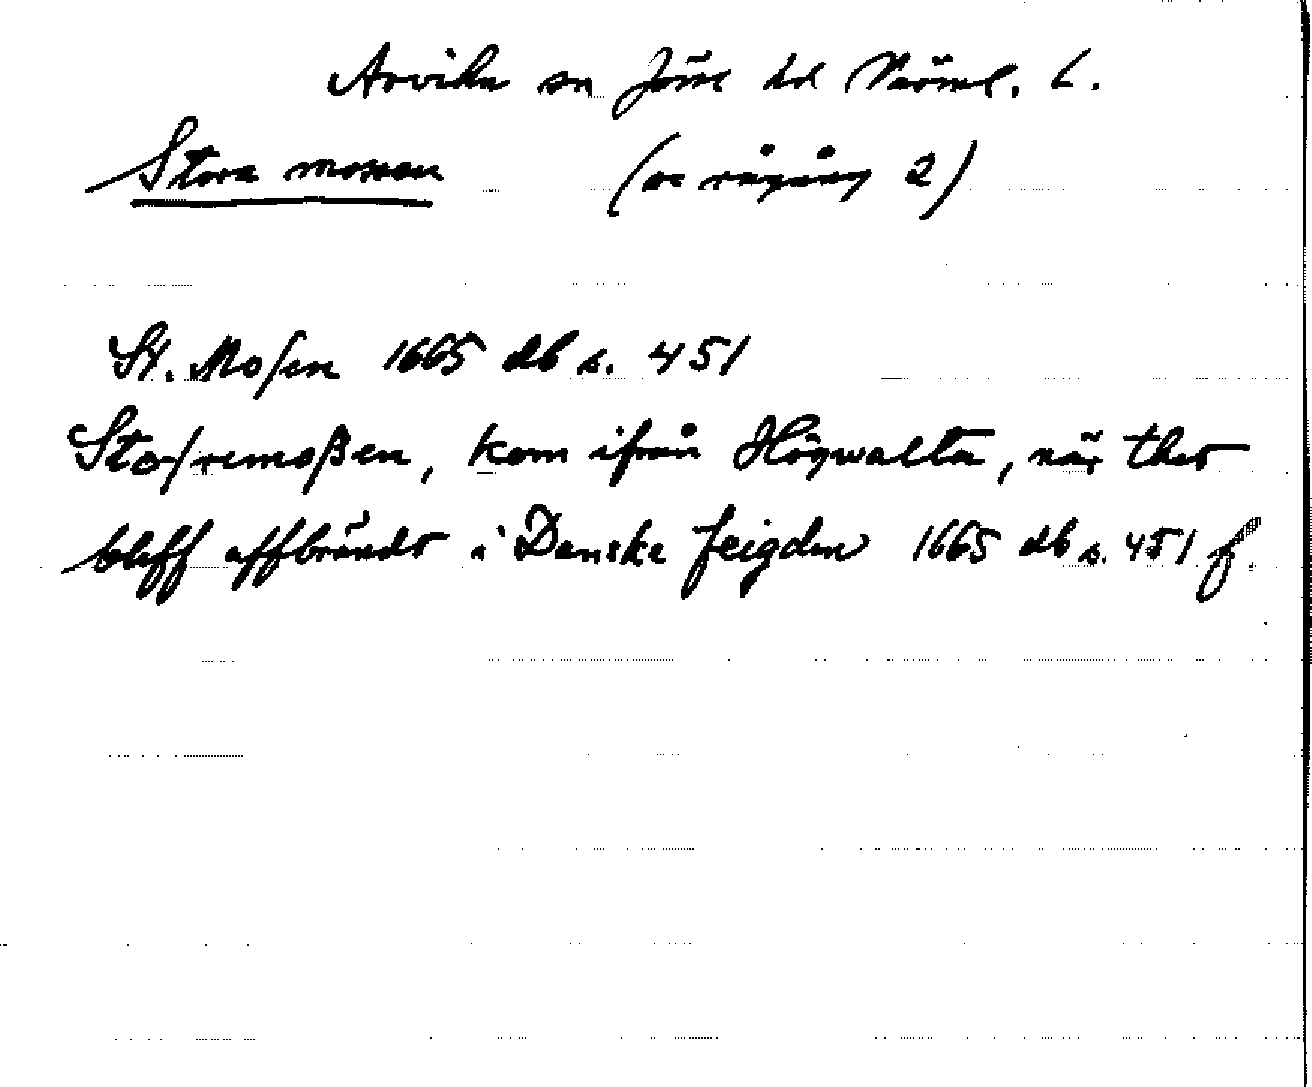 Arvika sn Jösse hd Värml. l.
Stora mossen (se rågång 2)
St. Mosen 1665 db s. 451
Sto/remoßen, kom ifrån Högwalta, när thet
bleff affbrändt i Danske feigden 1665 db s. 451 f.